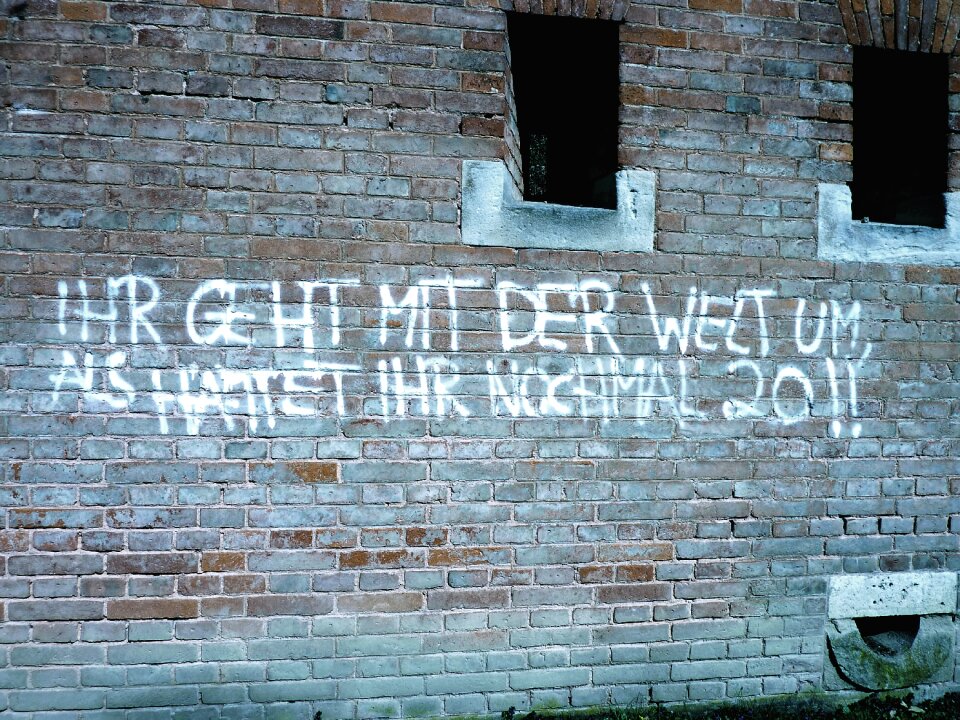 IHR GEHT MIT DER WELT UM,
ALS HÄTTET IHR NOCHMAL 20!!